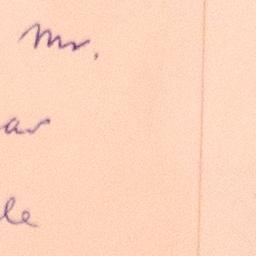 Mr.
ar
le